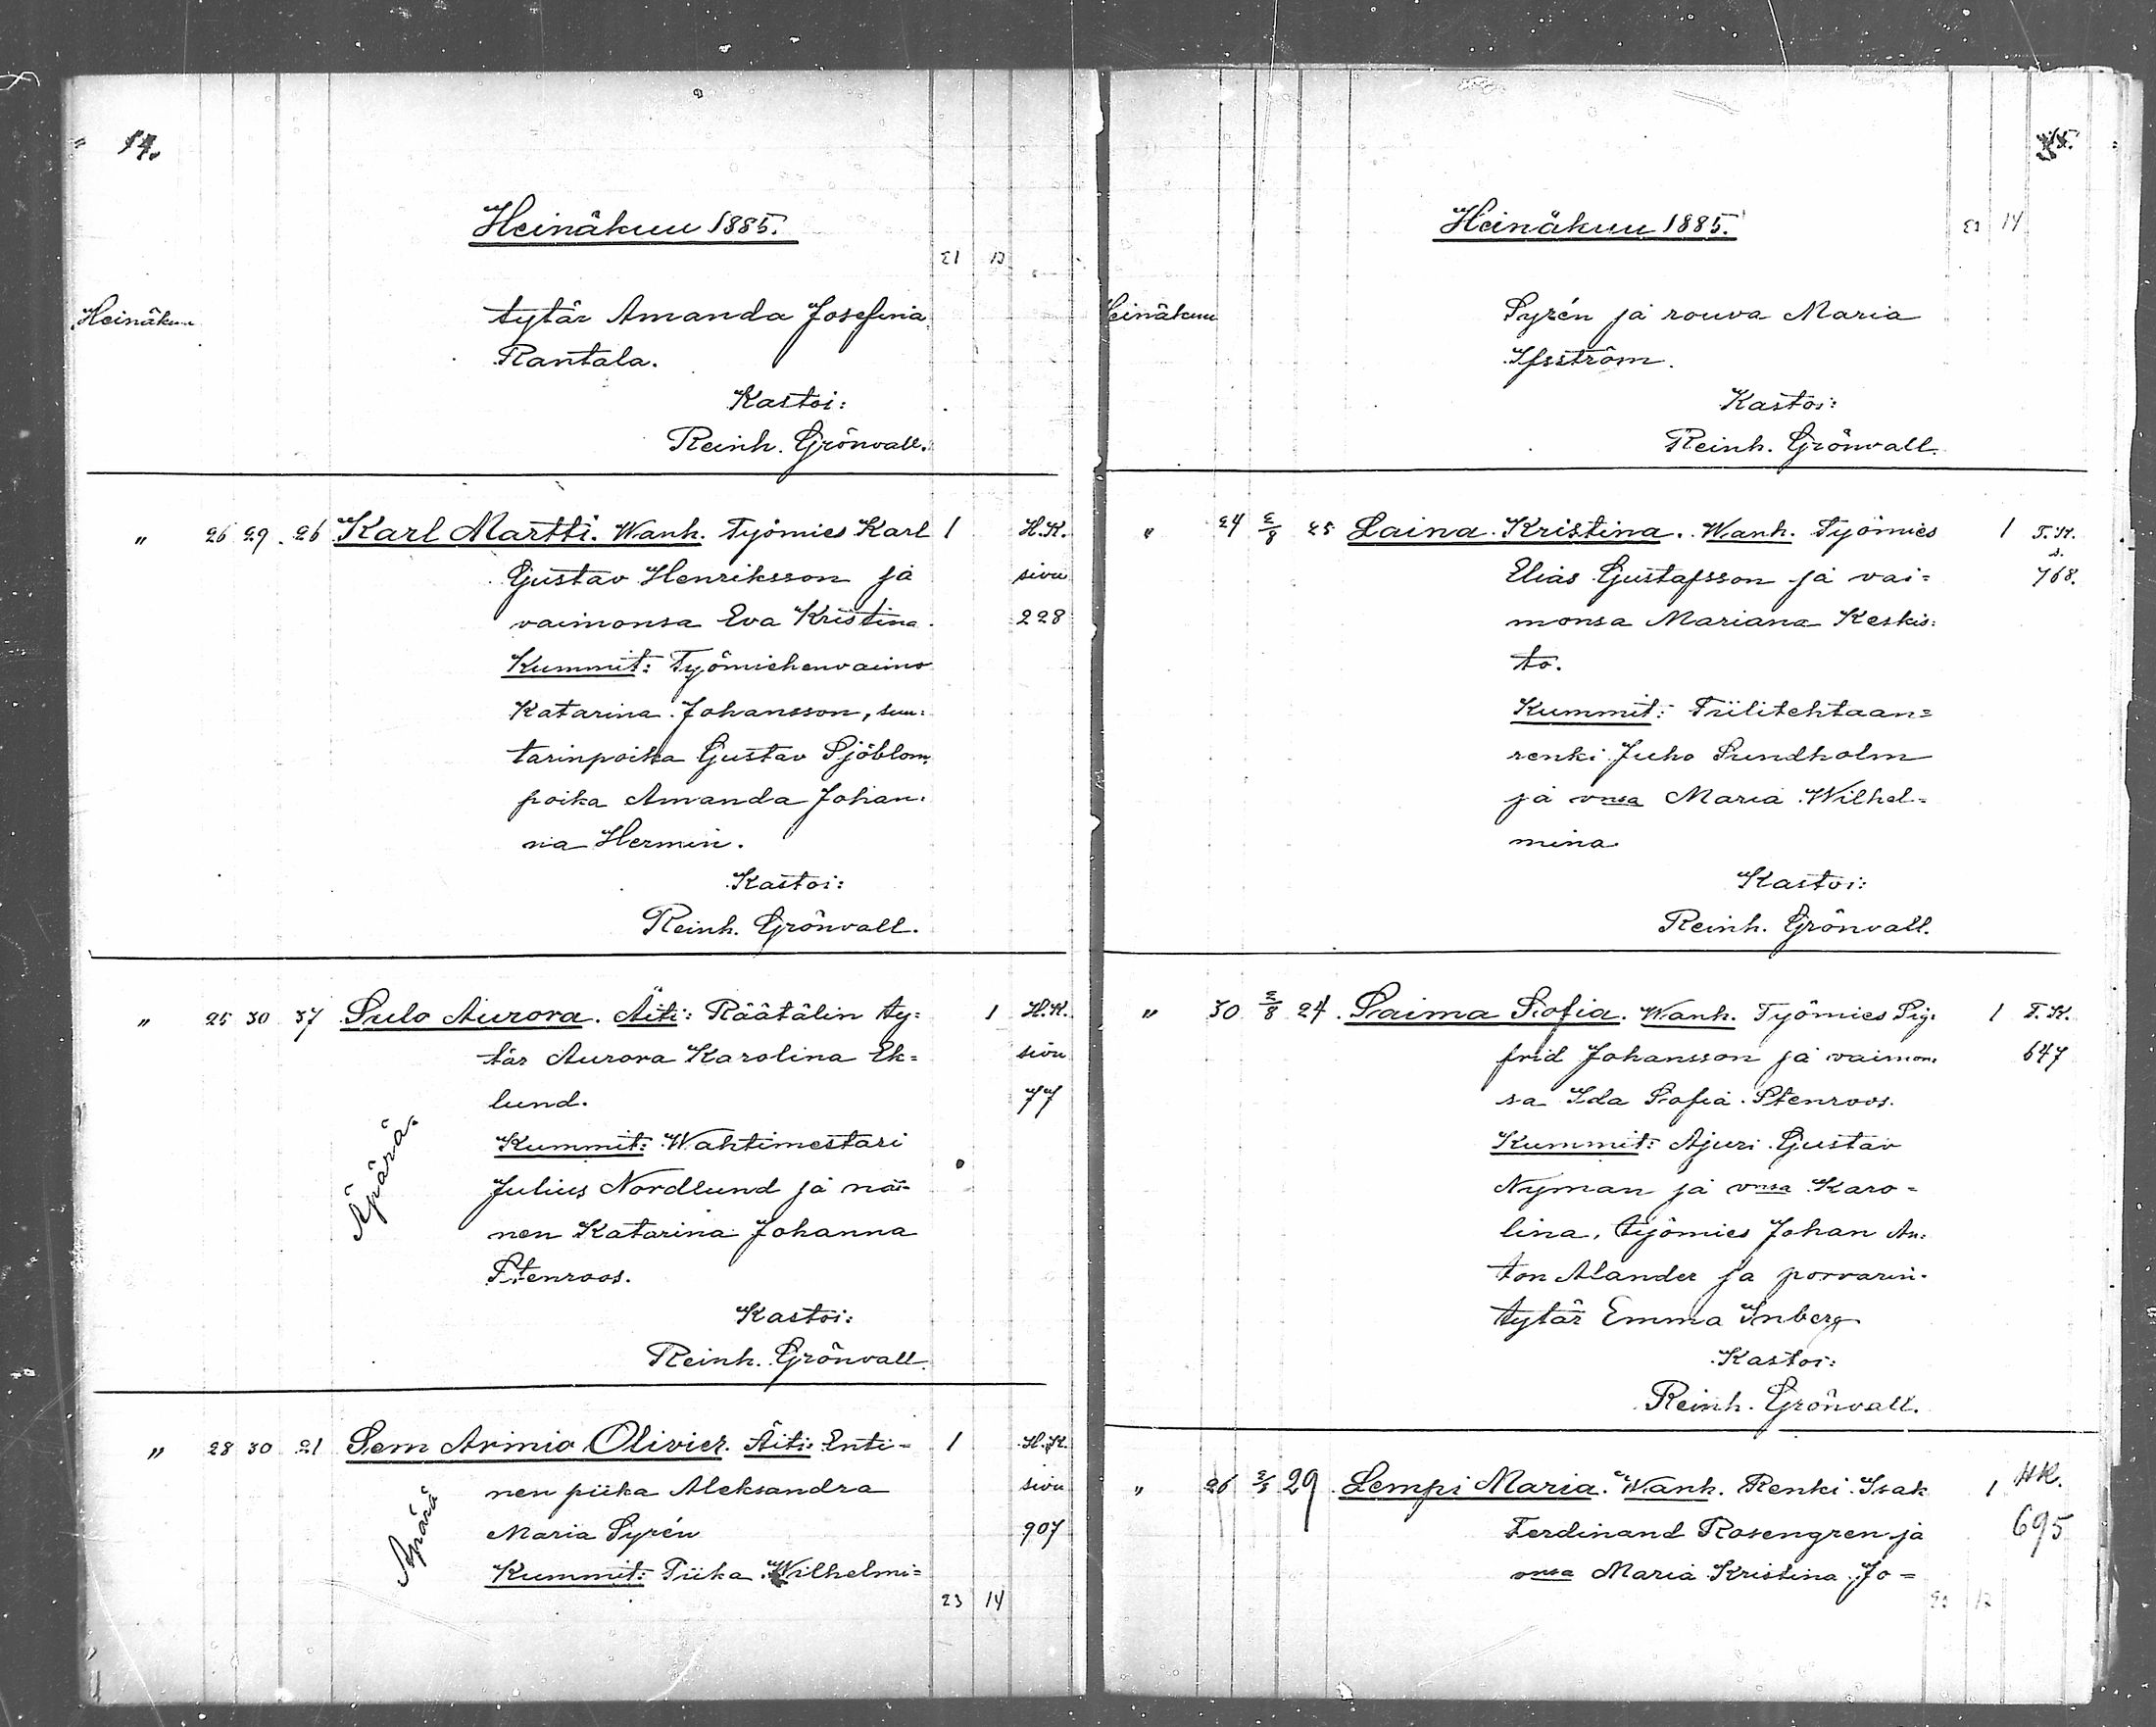 14.
Heinäkuu 1885.
21 13
Heinäkuu tytär Amanda Josefina
Rantala.
Kastoi:
Reinh. Grönvall.
" 26 29. 26 Karl Martti. Wanh. Työmies Karl 1 H.K.
Gustav Henriksson ja sivu
vaimonsa Eva Kristina. 228
Kummit: Työmiehenvaimo
Katarina Johansson, suu=
tarinpoika Gustav Sjöblom,
poika Amanda Johan=
na Hermin.
Kastoi:
Reinh. Grönvall.
" 25 30 37 Sulo Aurora. Äiti: Räätälin ty= 1 H.K.
tär Aurora Karolina Ek= sivu
lund. 77
Äpärä.
Kummit: Wahtimestari
Julius Nordlund ja nai=
nen Katarina Johanna
Stenroos.
Kastoi:
Reinh. Grönvall.
" 28 30 21 Sem Arinio Olivier. Äiti: Enti= 1 H.K.
nen piika Aleksandra sivu
Maria Syrén 907
Äpärä
Kummit: Piika Wilhelmi=
23 14
15.
Heinäkuu 1885.
23 14
Heinäkuu Syrén ja rouva Maria
Kastoi:
Reinh. Grönvall.
" 24 2/8 25 Laina Kristina. Wanh. Työmies 1 T.K.
Elias Gustafsson ja vai= s. 768.
monsa Mariana Keskis=
to.
Kummit: Tiilitehtaan=
renki Juho Sundholm
ja vnsa Maria Wilhel=
mina
Kastoi:
Reinh. Grönvall.
" 30 2/8 24. Saima Sofia. Wanh. Työmies Sig= 1 T.K.
frid Johansson ja vaimon= 647
sa Ida Sofia Stenroos.
Kummit: Ajuri Gustav
Nyman ja vnsa Karo=
lina, työmies Johan An=
ton Alander ja porvarin=
tytär Emma Inberg
Kastoi:
Reinh. Grönvall.
" 26 29 Lempi Maria. Wanh. Renki Isak 1 HK.
Ferdinand Rosengren ja 695
vnsa Maria Kristina Jo=